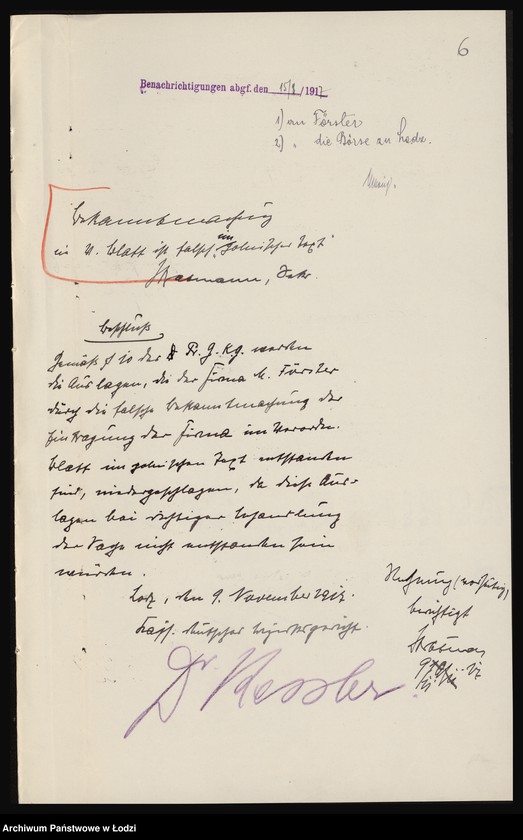 6
Benachrichtigungen abgf. den 15/8 /1917
1) an Förster
2) " die Börse zu Lodz.
Bekanntmachung
im V. Blatt ist falsch, im "polnischer Text"
Beschluß
Gemäß § 10 der Pr. G. Kg. werden
die Auslagen, die der Firma M. Förster
durch die falsche Bekanntmachung der
Eintragung der Firma im Verordn.
Blatt im polnischen Text entstanden
sind, niedergeschlagen, da diese Aus-
lagen bei richtiger Behandlung
der Sache nicht entstanden sein
würden.
Lodz, den 9. November 1917.
Kais. deutsches Bezirksgericht.
Dr. Kessler
Rechnung
berichtigt
Archiwum Państwowe w Łodzi